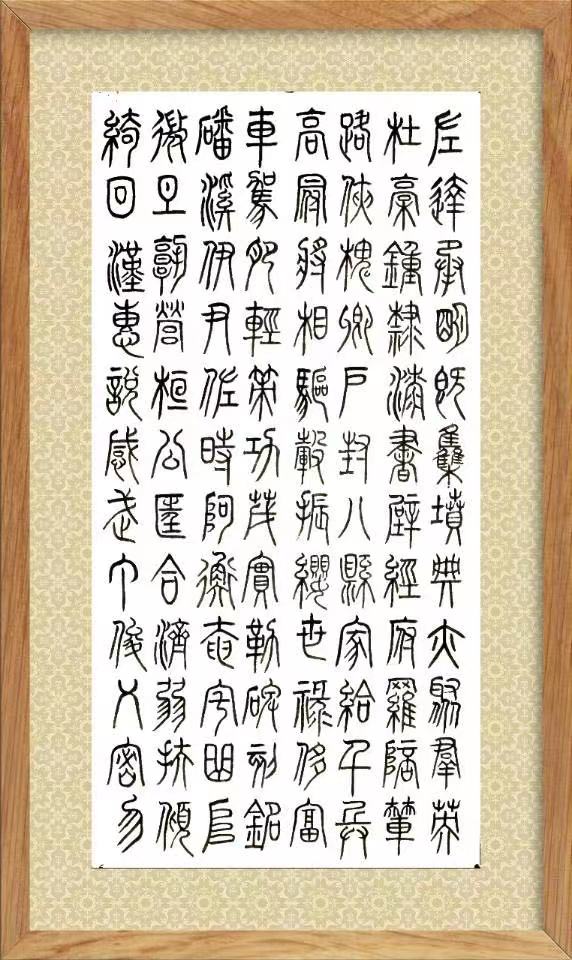 左達承明既集墳典亦聚群英
杜稾鍾隸漆書壁經府羅陪輦
路俠槐卿戶封八縣家給千兵
高冠將相驅轂振纓世祿侈富
車駕肥輕策功茂實勒碑刻銘
磻溪伊尹佐時阿衡奄宅曲阜
微旦孰營桓公匡合濟弱扶傾
綺回漢惠說感武丁俊乂密勿